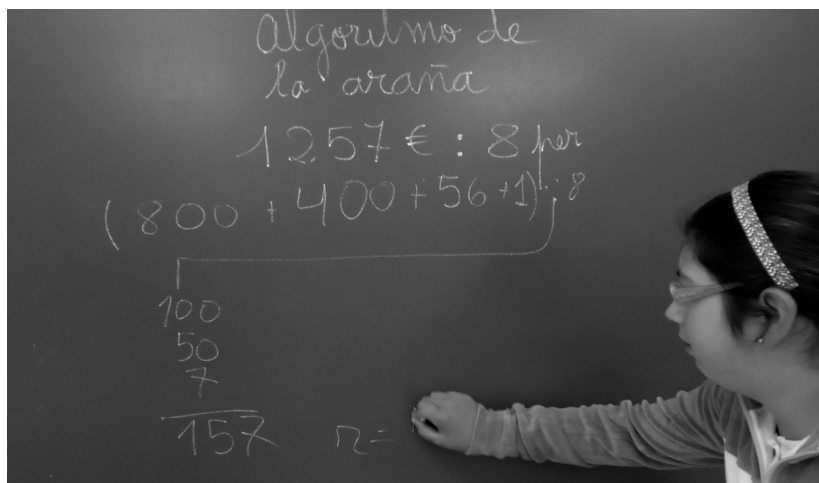 Algoritmo de
la araña
1257 € : 8 per
(800 + 400 + 56 + 1) : 8
100
50
7
157 r =